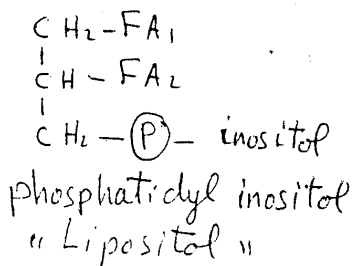 CH₂-FA₁
CH-FA₂
CH₂-Ⓟ- inositol
phosphatidyl inositol
"Lipositol"